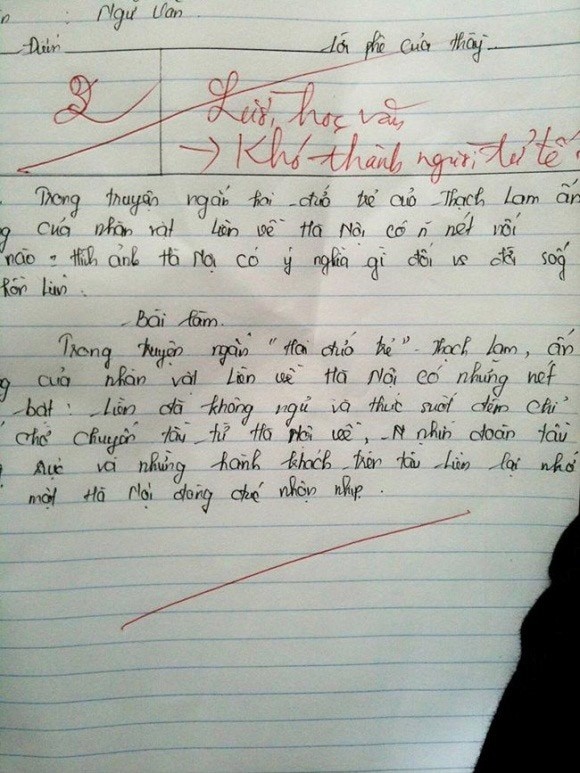 : Ngữ Văn
Điểm
Lời phê của thầy
2
Lười học văn
→ Khó thành người tử tế
Trong truyện ngắn hai đứa trẻ của Thạch Lam ấn
g của nhân vật Liên về Hà Nội có n nét nổi
nào = Hình ảnh Hà Nội có ý nghĩa gì đối vs đời sống
Liên.
Bài làm.
Trong truyện ngắn "Hai đứa trẻ" Thạch Lam, ấn
g của nhân vật Liên về Hà Nội có những nét
bật : Liên đã không ngủ và thức suốt đêm chỉ
chờ chuyến tàu từ Hà Nội về, nhìn đoàn tàu
rực và những hành khách trên tàu Liên lại nhớ
một Hà Nội đông đúc nhộn nhịp.